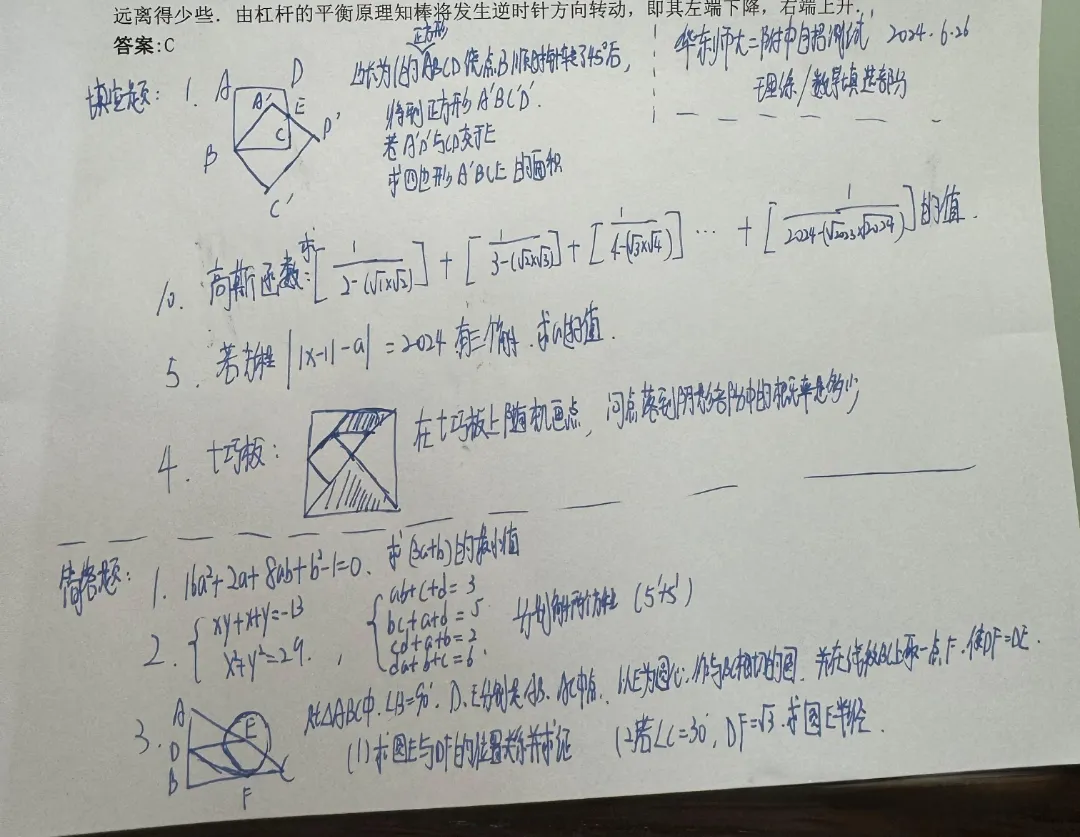 远离得少些．由杠杆的平衡原理知棒将发生逆时针方向转动，即其左端下降，右端上升．
答案:C
华东师大二附中自招测试 2024.6.26
理综/数学填选部分
填空题：1. A D A' E B C D' C'
正方形
边长为1的ABCD绕点B顺时针转了45°后，
得到正方形A'BC'D'.
若A'D'与CD交于E
求四边形A'BCE的面积
10. 高斯函数：求[1/(2-(√1×√2))] + [1/(3-(√2×√3))] + [1/(4-(√3×√4))] … + [1/(2024-(√2023×√2024))]的值.
5. 若方程 ||x-1|-a| = 2024 有三个解．求a的值．
4. 七巧板： 在七巧板上随机画点，问点落到阴影部分中的概率是多少
简答题：1. 16a²+2a+8ab+b²-1=0、求(3a+b)的最小值
2. { xy+x+y=-13
x²+y²=29. ，
{ ab+c+d=3
bc+a+d=5
cd+a+b=2
da+b+c=6.
分别解两个方程 (5'+5')
3. A D B E F C
Rt△ABC中．∠B=90°．D、E分别是AB、AC中点．以E为圆心．作与BC相切的圆．并在线段BC上取一点F．使DF=DE．
(1)求圆E与DF的位置关系并求证 (2)若∠C=30°，DF=√3．求圆E半径．